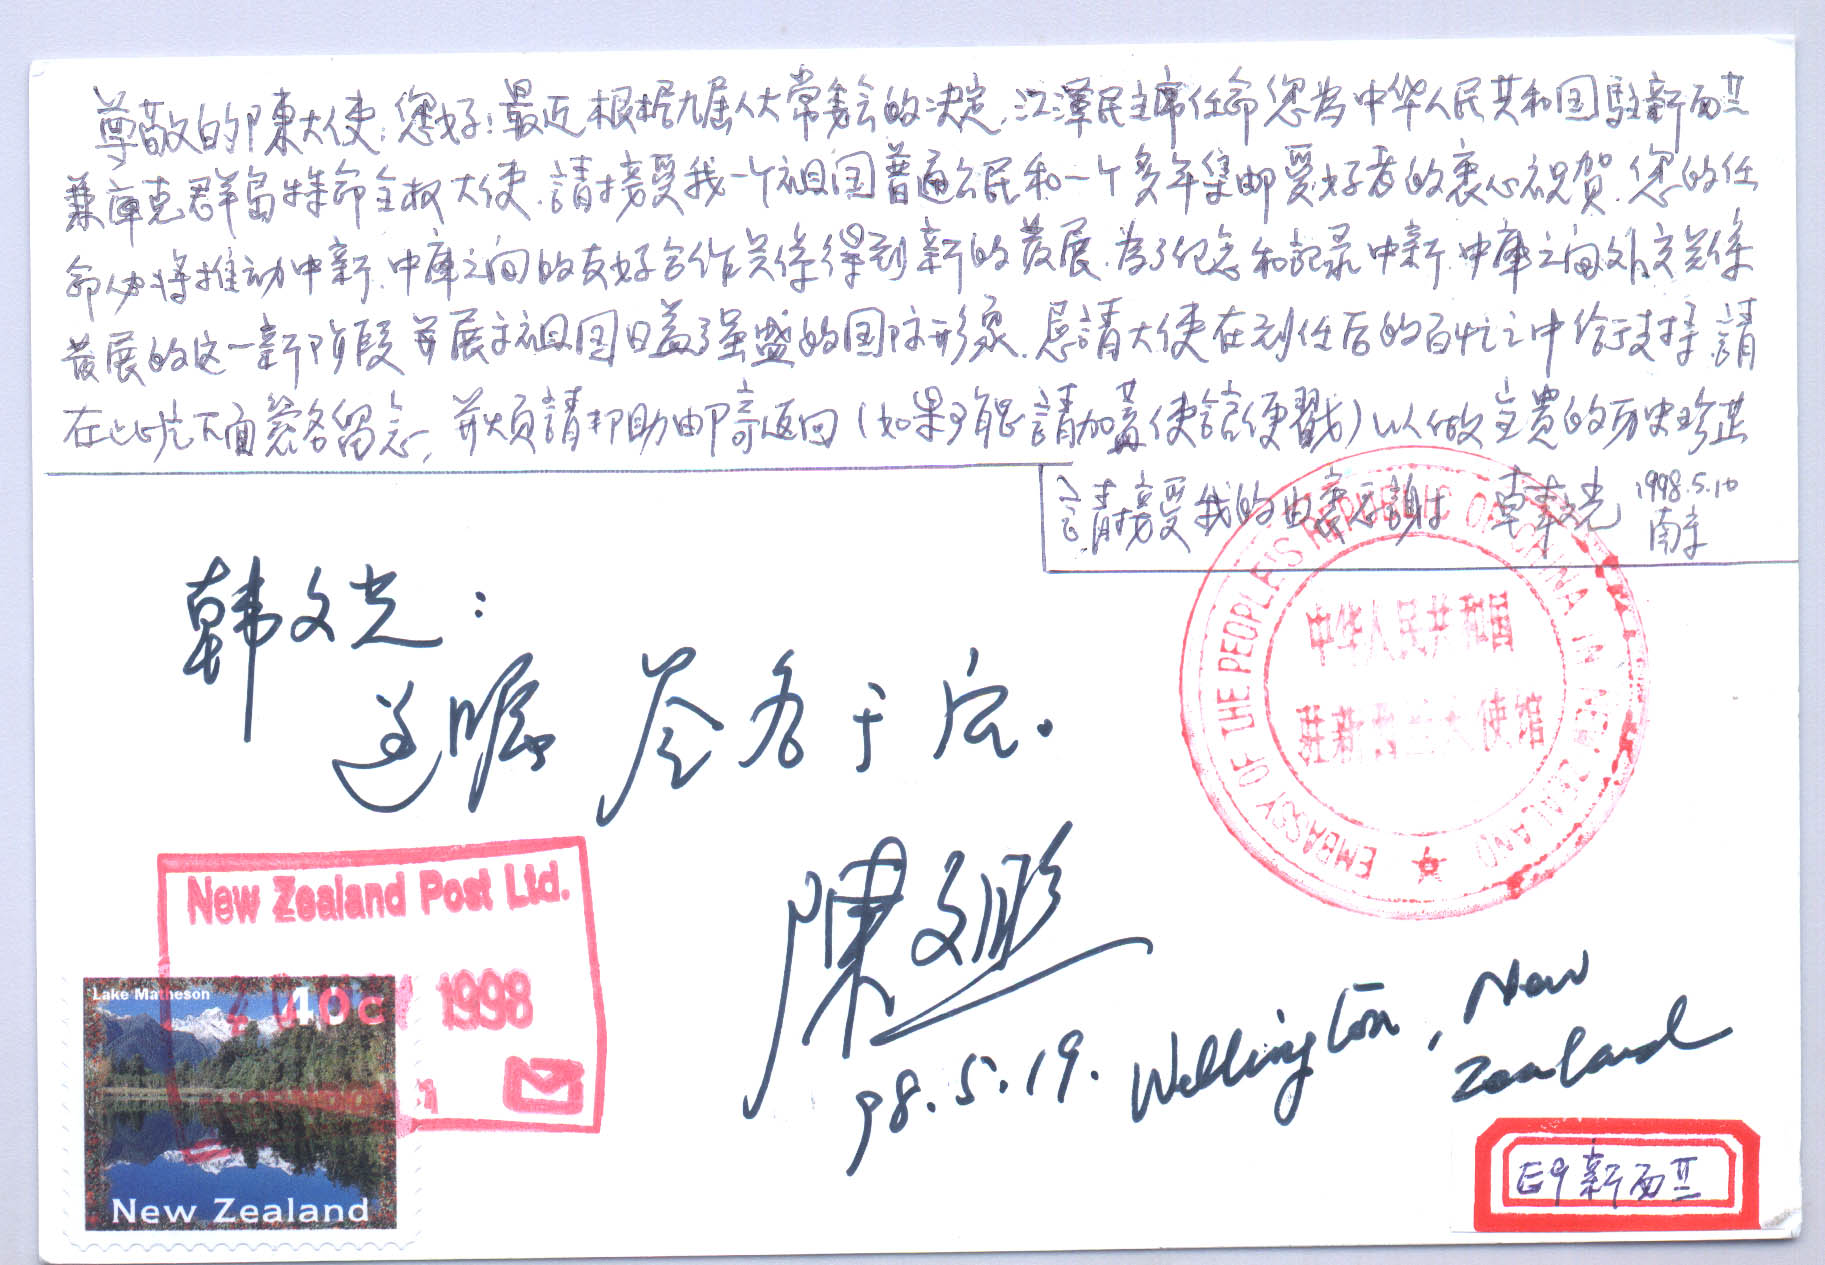 尊敬的陳大使：您好！最近根据九届人大常委会的决定，江澤民主席任命您为中华人民共和国駐新西兰
兼庫克群島特命全权大使，請接受我一个祖国普通公民和一个多年集邮爱好者的衷心祝贺。您的任
命必将推动中新、中庫之间的友好合作关係得到新的发展，为了纪念和記录中新、中庫之间外交关係
发展的这一新阶段并展示祖国日益强盛的国际形象，恳請大使在到任后的百忙之中给予支持，請
在此片下面签名留念，并烦請帮助邮寄返回（如果可能請加蓋使館便戳）以做宝贵的历史珍芷
請接受我的由衷感謝！ 韩文光 1998.5.10
南京
韩文光：
遵嘱签名于后。
陳文照
98.5.19. Wellington, New
Zealand
EMBASSY OF THE PEOPLE'S REPUBLIC OF CHINA IN NEW ZEALAND
中华人民共和国
驻新西兰大使馆
New Zealand Post Ltd.
1998
Lake Matheson
40c
New Zealand
E9新西兰